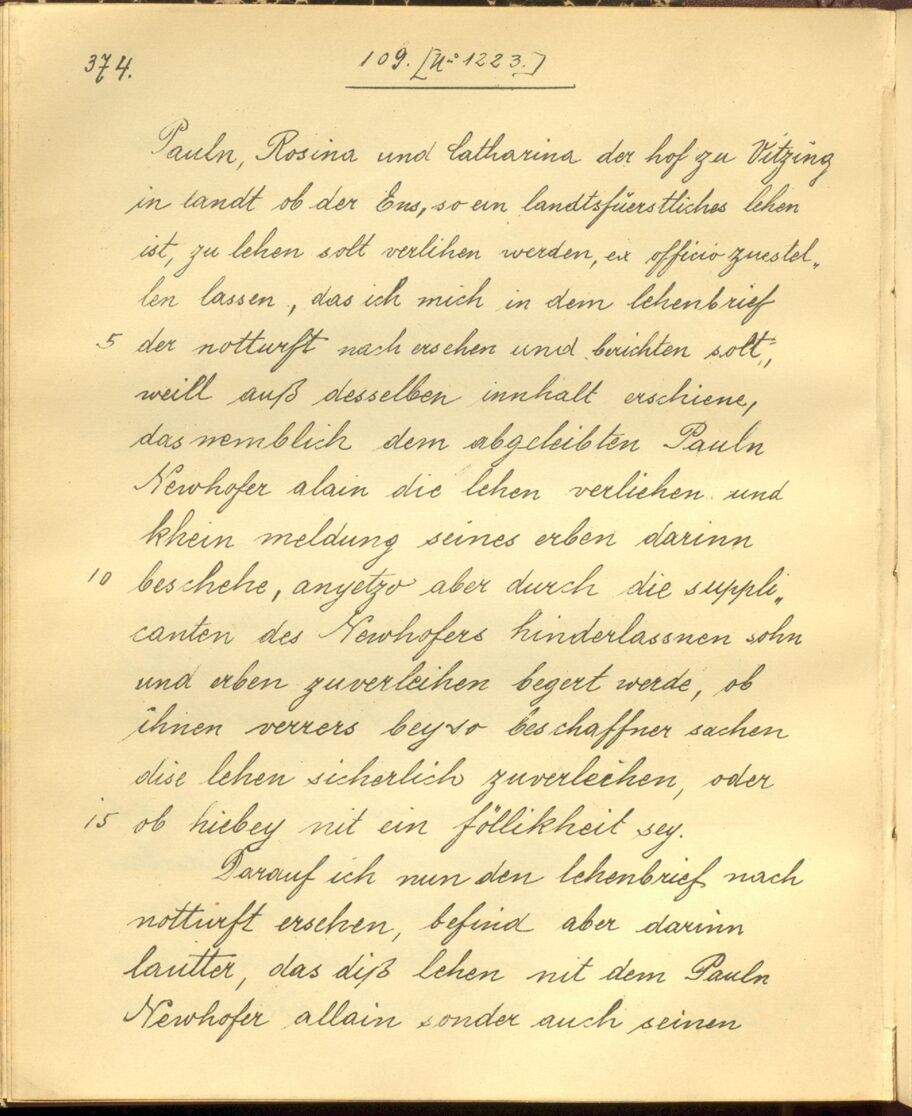 374.
109. [No 1223.]
Pauln, Rosina und Catharina der hof zu Vitzing
in landt ob der Ens, so ein landtsfüerstliches lehen
ist, zu lehen solt verlihen werden, ex officio zuestel„
len lassen, das ich mich in dem lehenbrief
5 der notturft nach ersehen und berichten solt,
weill auß desselben innhalt erschiene,
das nemblich dem abgeleibten Pauln
Newhofer alain die lehen verliehen und
khein meldung seines erben darinn
10 beschehe, anyetzo aber durch die suppli„
canten des Newhofers hinderlassnen sohn
und erben zuverleihen begert werde, ob
ihnen verrers bey so beschaffner sachen
dise lehen sicherlich zuverleihen, oder
15 ob hiebey nit ein föllikheit sey.
Darauf ich nun den lehenbrief nach
notturft ersehen, befind aber darinn
lautter, das diß lehen nit dem Pauln
Newhofer allain sonder auch seinen